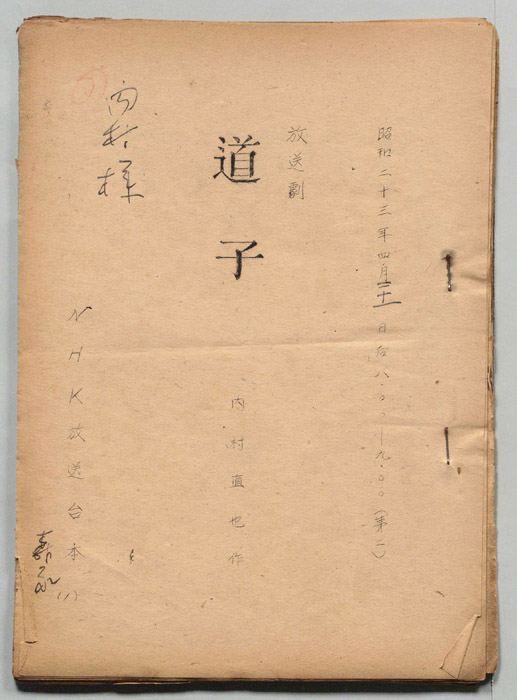 昭和二十三年四月二十一日后八・〇〇―九・〇〇(第二)
放送劇
道子
内村直也作
内村様
NHK放送台本(1)